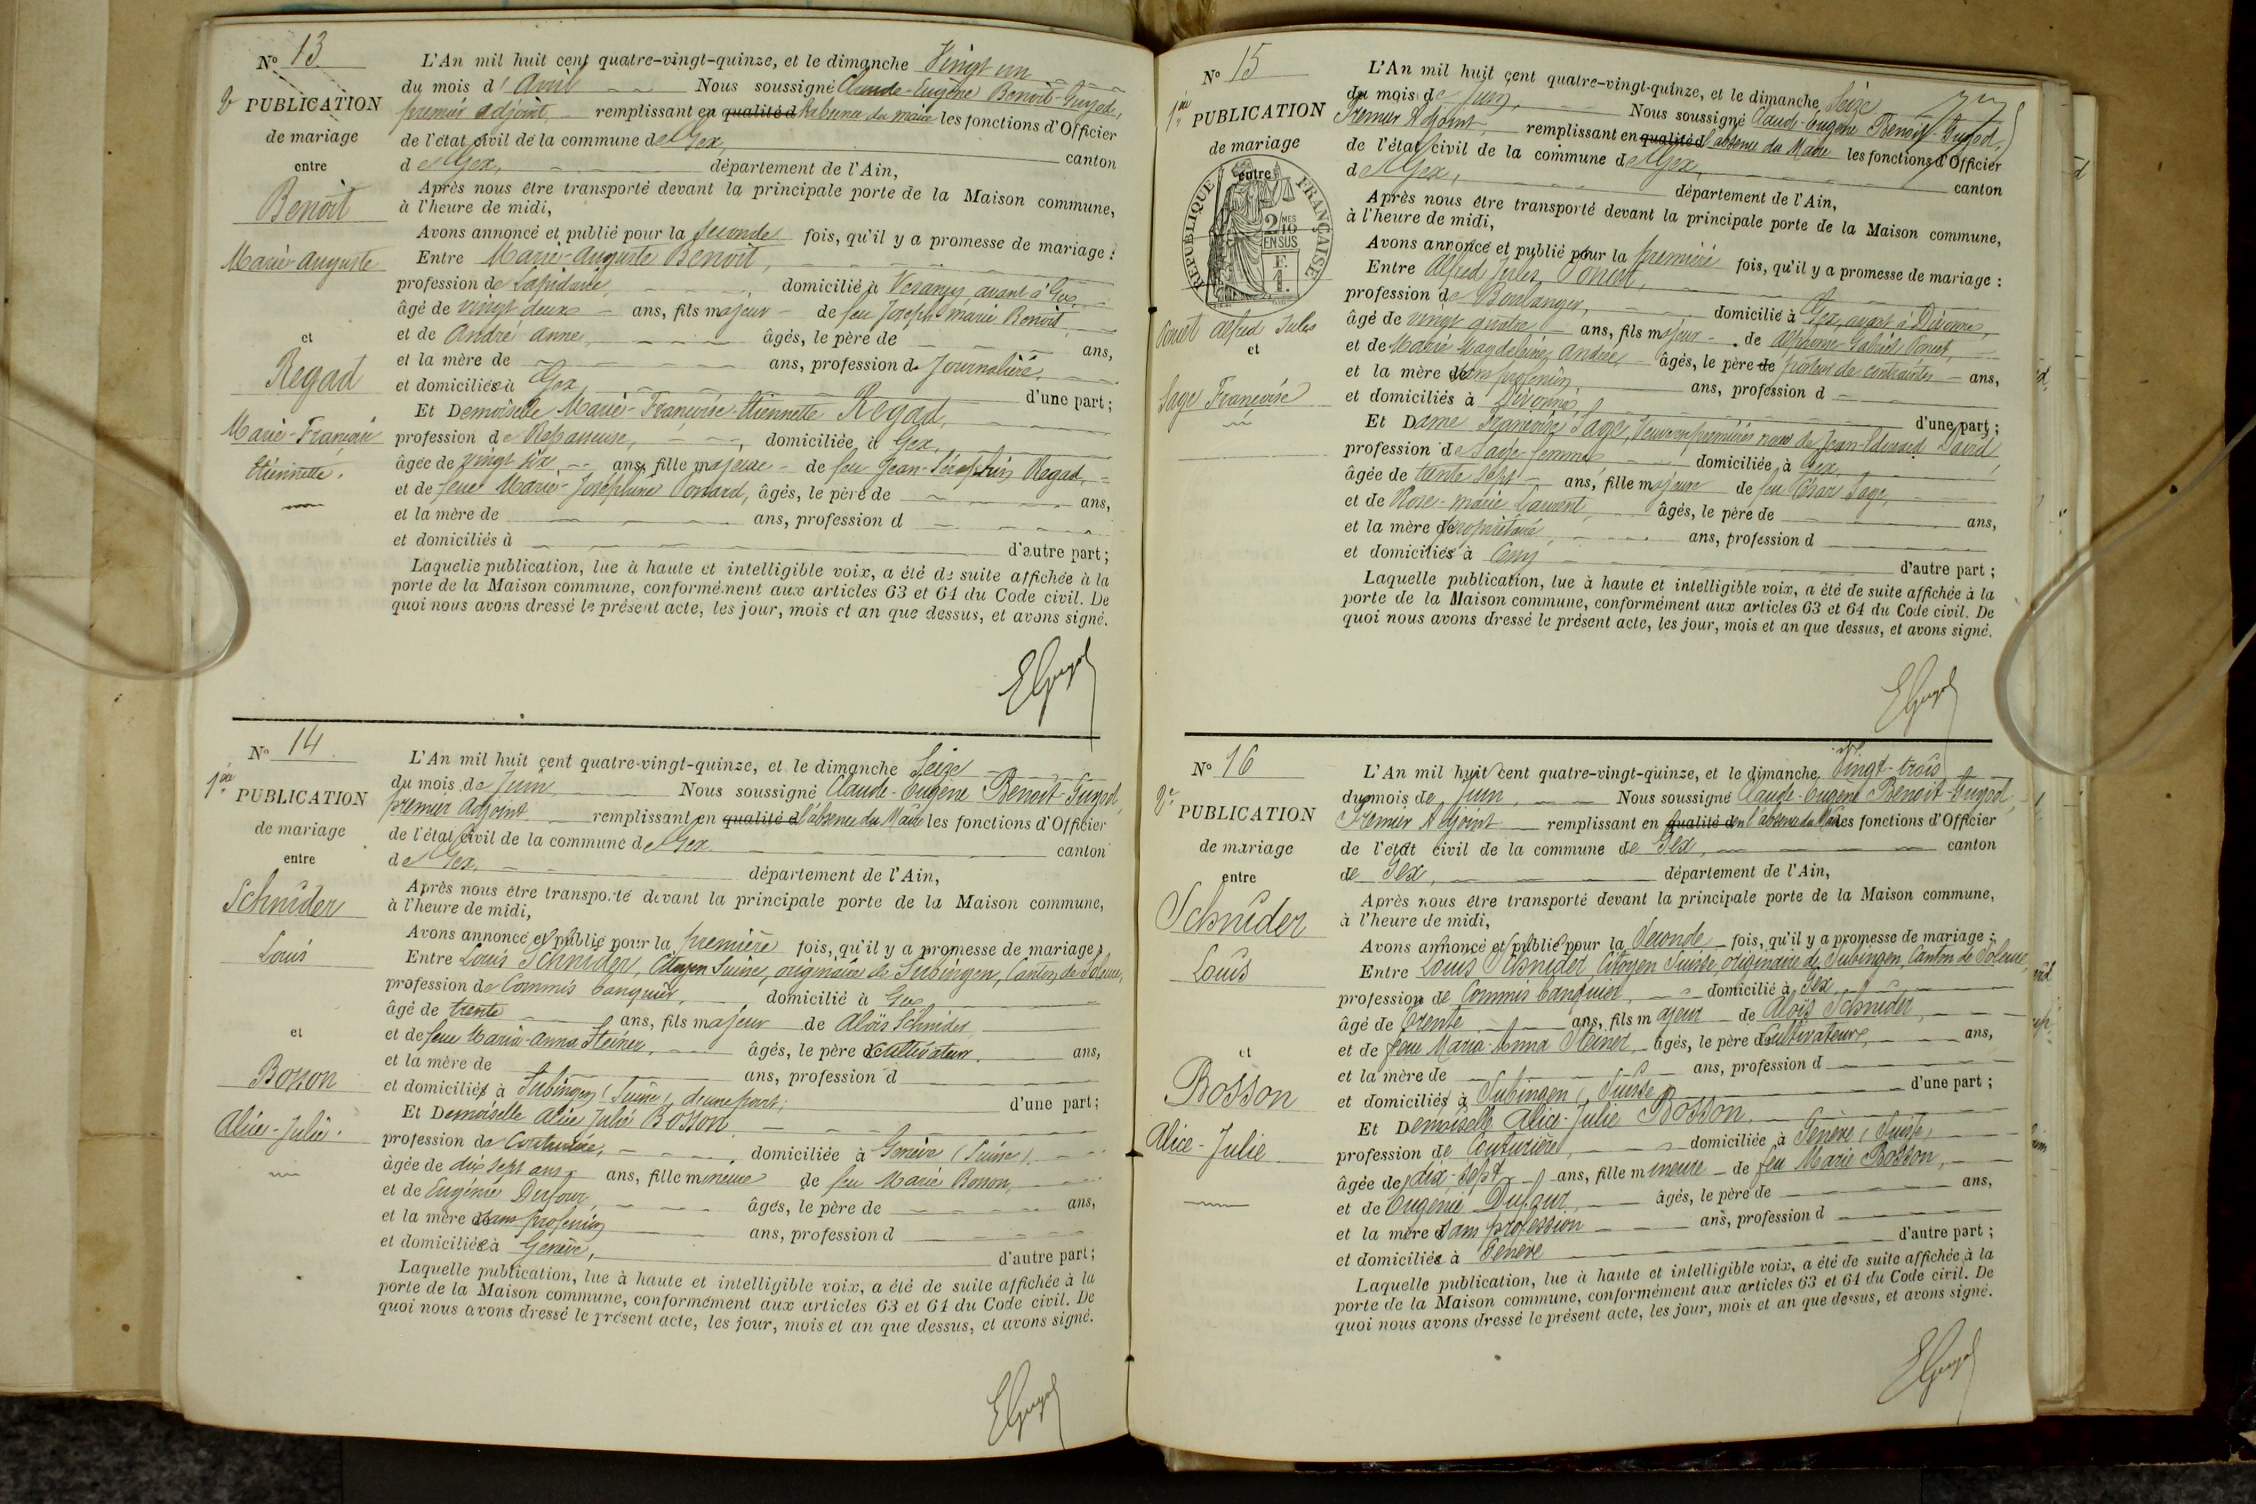 Nº 13
2e PUBLICATION
de mariage
entre
Benoit
Marie-Auguste
et
Regad
Marie-Françoise
Etiennette.
L'An mil huit cent quatre-vingt-quinze, et le dimanche Vingt un
du mois d'Avril Nous soussigné Claude-Eugène Benoit-Guyod,
premier adjoint, remplissant en qualité d l'absence du maire les fonctions d'Officier
de l'état civil de la commune de Gex, canton
de Gex, département de l'Ain,
Après nous être transporté devant la principale porte de la Maison commune,
à l'heure de midi,
Avons annoncé et publié pour la seconde fois, qu'il y a promesse de mariage :
Entre Marie-Auguste Benoit,
profession de Lapidaire, domicilié à avant à Gex,
âgé de vingt deux ans, fils majeur de feu Joseph-marie Benoit,
et de André Anne, âgés, le père de ans,
et la mère de ans, profession de Journalière,
et domiciliée à Gex d'une part ;
Et Demoiselle Marie-Françoise-Etiennette Regad,
profession de Repasseuse, domiciliée à Gex,
âgée de vingt six ans, fille majeure de feu Jean-Séraphin Regad,
et de feue Marie-Joséphine Ponard, âgés, le père de ans,
et la mère de ans, profession d
et domiciliés à d'autre part ;
Laquelle publication, lue à haute et intelligible voix, a été de suite affichée à la
porte de la Maison commune, conformément aux articles 63 et 64 du Code civil. De
quoi nous avons dressé le présent acte, les jour, mois et an que dessus, et avons signé.
EGuyod
Nº 14
1ère PUBLICATION
de mariage
entre
Schnider
Louis
et
Bosson
Alice-Julie.
L'An mil huit cent quatre-vingt-quinze, et le dimanche Seize
du mois de Juin Nous soussigné Claude-Eugène Benoit-Guyod,
premier Adjoint remplissant en qualité d l'absence du Maire les fonctions d'Officier
de l'état civil de la commune de Gex canton
de Gex, département de l'Ain,
Après nous être transporté devant la principale porte de la Maison commune,
à l'heure de midi,
Avons annoncé et publié pour la première fois, qu'il y a promesse de mariage :
Entre Louis Schnider, Citoyen Suisse, originaire de Subingen, Canton de Soleure,
profession de Commis banquier, domicilié à Gex
âgé de trente ans, fils majeur de Aloïs Schnider
et de feue Maria-Anna Steiner, âgés, le père cultivateur, ans,
et la mère de ans, profession d
et domiciliés à Subingen (Suisse), d'une part; d'une part;
Et Demoiselle Alice Julie Bosson
profession de Couturière, domiciliée à Genève (Suisse)
âgée de dix sept ans ans, fille mineure de feu Marie Bosson,
et de Eugénie Dufour, âgés, le père de ans,
et la mère sans profession ans, profession d
et domiciliée à Genève, d'autre part ;
Laquelle publication, lue à haute et intelligible voix, a été de suite affichée à la
porte de la Maison commune, conformément aux articles 63 et 64 du Code civil. De
quoi nous avons dressé le présent acte, les jour, mois et an que dessus, et avons signé.
EGuyod
Nº 15
1ère PUBLICATION
de mariage
entre
RÉPUBLIQUE FRANÇAISE
2/10 MES
EN SUS
F.
1.
Ponet Alfred Jules
et
Sage Françoise
L'An mil huit cent quatre-vingt-quinze, et le dimanche Seize
du mois de Juin, Nous soussigné Claude-Eugène Benoit-Guyod,
Premier Adjoint, remplissant en qualité d l'absence du Maire les fonctions d'Officier
de l'état civil de la commune de Gex, canton
de Gex, département de l'Ain,
Après nous être transporté devant la principale porte de la Maison commune,
à l'heure de midi,
Avons annoncé et publié pour la première fois, qu'il y a promesse de mariage :
Entre Alfred Jules Ponet,
profession de Boulanger, domicilié à Gex, avant à Divonne,
âgé de vingt quatre ans, fils majeur de Alphonse-Gabriel Ponet,
et de Marie Magdeleine André, âgés, le père porteur de contraintes ans,
et la mère sans profession, ans, profession d
et domiciliés à Divonne, d'une part ;
Et Dame Françoise Sage, Veuve en premières noces de Jean-Edouard David,
profession de Sage-femme domiciliée à Gex
âgée de trente sept ans, fille majeure de feu César Sage,
et de Rose-marie Laurent, âgés, le père de ans,
et la mère propriétaire, ans, profession d
et domiciliés à Cessy d'autre part ;
Laquelle publication, lue à haute et intelligible voix, a été de suite affichée à la
porte de la Maison commune, conformément aux articles 63 et 64 du Code civil. De
quoi nous avons dressé le présent acte, les jour, mois et an que dessus, et avons signé.
EGuyod
Nº 16
2e PUBLICATION
de mariage
entre
Schnider
Louis
et
Bosson
Alice-Julie
L'An mil huit cent quatre-vingt-quinze, et le dimanche Vingt-trois
du mois de Juin, Nous soussigné Claude-Eugène Benoit-Guyod,
Premier Adjoint remplissant en qualité d en l'absence du Maire les fonctions d'Officier
de l'état civil de la commune de Gex, canton
de Gex, département de l'Ain,
Après nous être transporté devant la principale porte de la Maison commune,
à l'heure de midi,
Avons annoncé et publié pour la Seconde fois, qu'il y a promesse de mariage :
Entre Louis Schnider, Citoyen Suisse, originaire de Subingen, Canton de Soleure,
profession de Commis banquier, domicilié à Gex,
âgé de trente ans, fils majeur de Aloïs Schnider,
et de feue Maria-Anna Steiner, âgés, le père Cultivateur, ans,
et la mère de ans, profession d
et domiciliés à Subingen (Suisse) d'une part ;
Et Demoiselle Alice-Julie Bosson,
profession de Couturière, domiciliée à Genève (Suisse)
âgée de dix-sept ans, fille mineure de feu Marie Bosson,
et de Eugénie Dufour, âgés, le père de ans,
et la mère sans profession ans, profession d
et domiciliés à Genève d'autre part ;
Laquelle publication, lue à haute et intelligible voix, a été de suite affichée à la
porte de la Maison commune, conformément aux articles 63 et 64 du Code civil. De
quoi nous avons dressé le présent acte, les jour, mois et an que dessus, et avons signé.
EGuyod